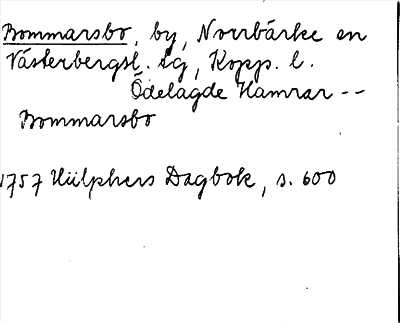 Bommarsbo, by, Norrbärke sn
Västerbergsl. dg, Kopp. l.
Ödelagde Hamrar --
Bommarsbo
1757 Hülphers Dagbok, s. 600